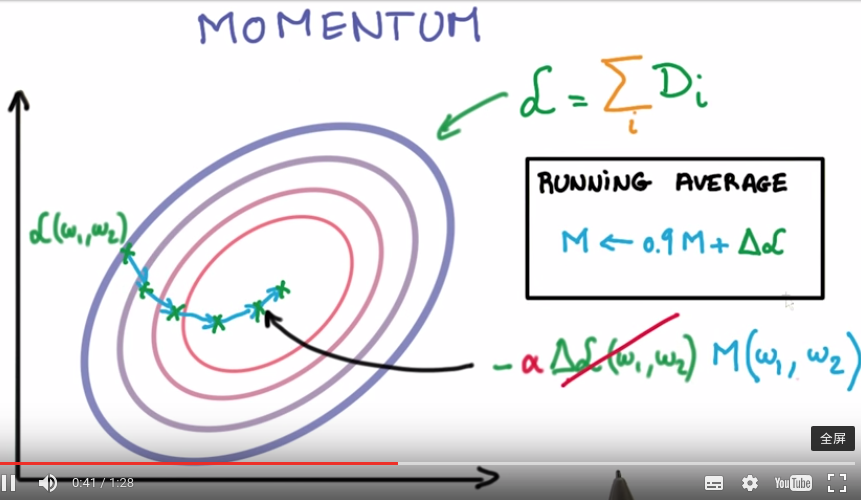 MOMENTUM
ℒ = Σ Di
i
RUNNING AVERAGE
M ← 0.9 M + Δℒ
ℒ(ω1, ω2)
- α Δℒ(ω1, ω2) M(ω1, ω2)
全屏
0:41 / 1:28
YouTube